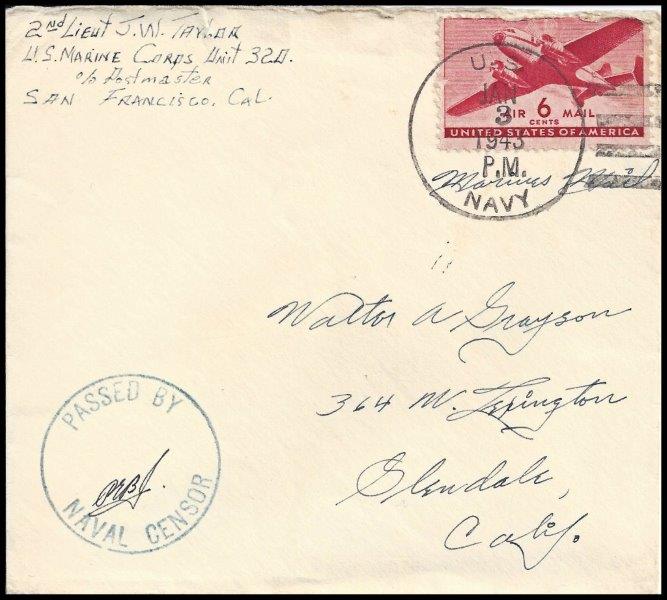 2nd Lieut J. W. Taylor
U.S. Marine Corps Unit 320.
c/o Postmaster
San Francisco, Cal
U.S.
JAN
3
1943
P.M.
NAVY
AIR 6 MAIL
CENTS
UNITED STATES OF AMERICA
Marines Mail
Walter A Grayson
364 W. Lexington
Glendale,
Calif.
PASSED BY
NAVAL CENSOR